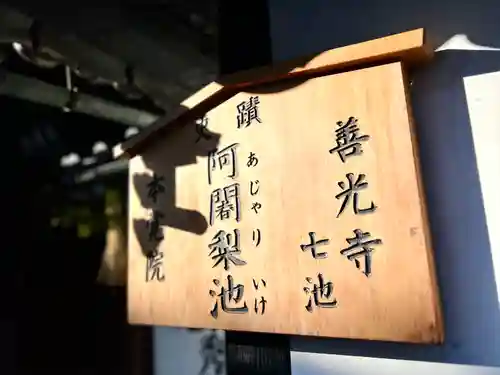 善光寺
七池
史蹟
阿闍梨池
あじゃり いけ
本覚院